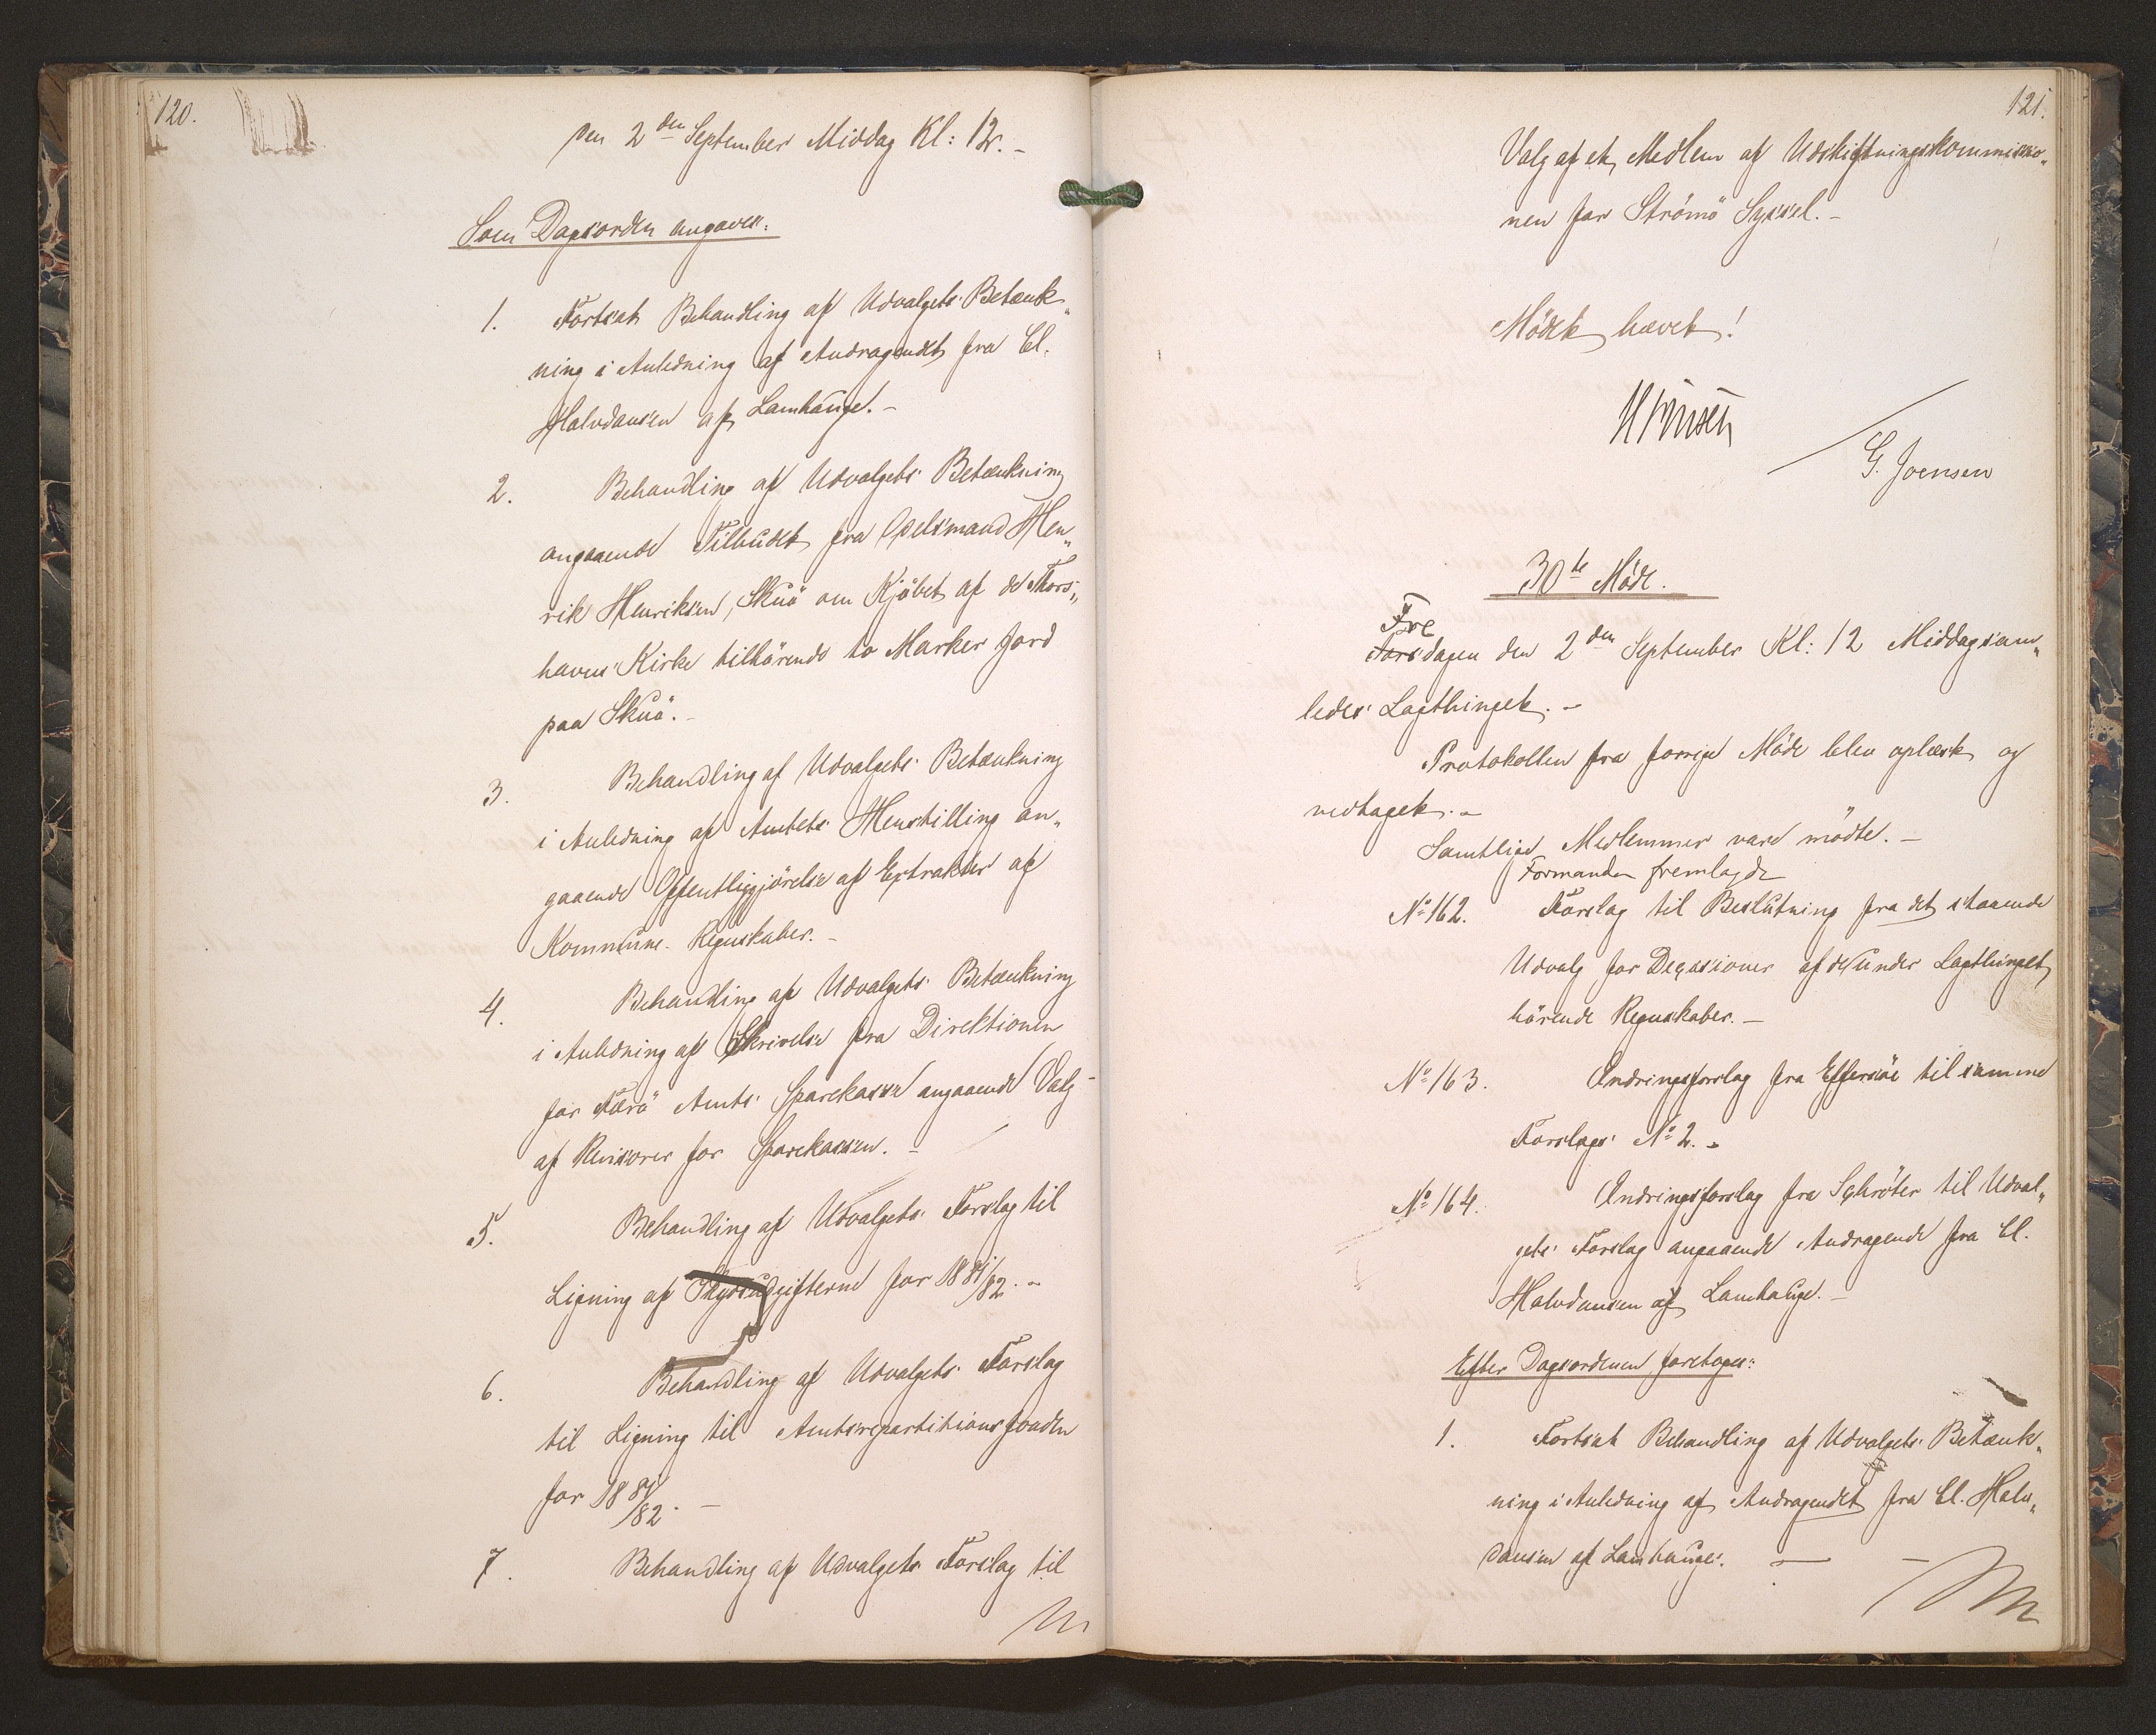 120.
den 2den September Middag Kl: 12. -
Som Dagsorden angaves:
1. Fortsat Behandling af Udvalgets Betænk„
ning i Anledning af Andragendet fra Cl.
Halvdansen af Lamhauge. -
2. Behandling af Udvalgets Betænkning
angaaende Tilbudet fra Opelsmand Hen„
rik Henriksen, Skuö om Kjöbet af de Thors„
havns Kirke tilhörende to Marker Jord
paa Skuö. -
3. Behandling af Udvalgets Betænkning
i Anledning af Amtets Henstilling an„
gaaende Offentliggjörelse af Extrakter af
Kommune-Regnskaber. -
4. Behandling af Udvalgets Betænkning
i Anledning af Skrivelse fra Direktionen
for Færö Amts Sparekasse angaaende Valg
af Revisorer for Sparekassen. -
5. Behandling af Udvalgets Forslag til
Ligning af Skydsudgifterne for 1881/82. -
6. Behandling af Udvalgets Forslag
til Ligning til Amtsrepartitionsfonden
for 1881/82. -
7. Behandling af Udvalgets Forslag til
121.
Valg af et Medlem af Udskiftningskommissio„
nen for Strömö Syssel. -
Mödet hævet!
G. Joensen
30te Möde.
Fre
Torsdagen den 2den September Kl: 12 Middag sam„
ledes Lagthinget. -
Protokollen fra forrige Möde blev oplæst og
vedtaget. -
Samtlige Medlemmer vare mödte. -
Formanden fremlagde
No 162. Forslag til Beslutning fra det staaende
Udvalg for Decasioner af de under Lagthinget
hörende Regnskaber. -
No 163. Ændringsforslag fra Effersöe til samme
Forslags No 2. -
No 164. Ændringsforslag fra Schröter til Udval„
gets Forslag angaaende Andragende fra Cl.
Halvdansen af Lamhauge. -
Efter Dagsordenen foretoges:
1. Fortsat Behandling af Udvalgets Betænk„
ning i Anledning af Andragendet fra Cl. Halv„
dansen af Lamhauge. -